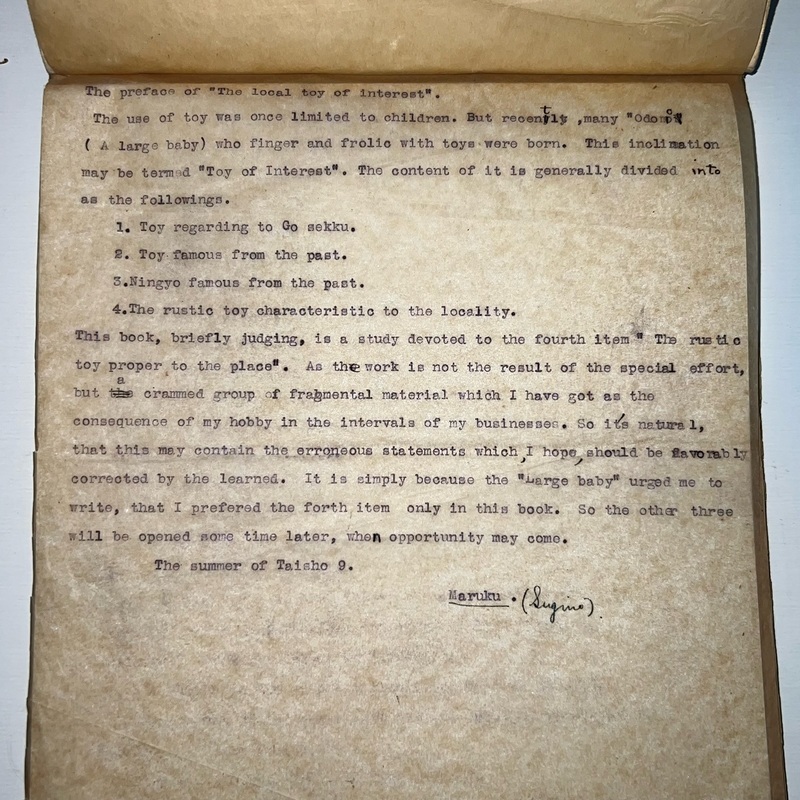 The preface of "The local toy of interest".
The use of toy was once limited to children. But recently ,many
( A large baby) who finger and frolic with toys were born. This inclination
may be termed "Toy of Interest". The content of it is generally divided into
as the followings.
1. Toy regarding to Go sekku.
2. Toy famous from the past.
3.Ningyo famous from the past.
4.The rustic toy characteristic to the locality.
This book, briefly judging, is a study devoted to the fourth item " The rustic
toy proper to the place". As the work is not the result of the special effort,
but a crammed group of fragmental material which I have got as the
consequence of my hobby in the intervals of my businesses. So it's natural,
that this may contain the erroneous statements which, I hope, should be favorably
corrected by the learned. It is simply because the "Large baby" urged me to
write, that I prefered the forth item only in this book. So the other three
will be opened some time later, when opportunity may come.
The summer of Taisho 9.
Maruku . (Sugino).